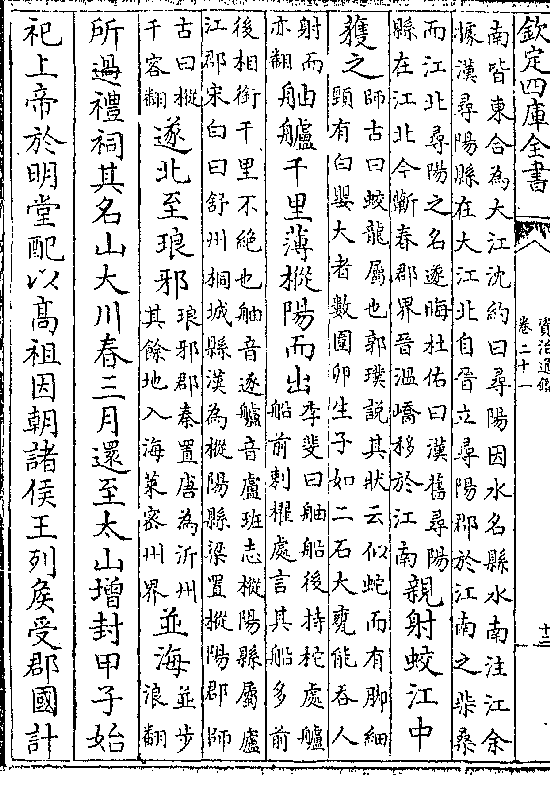 欽定四庫全書
資治通鑑
卷二十一
南皆東合為大江沈約曰尋陽因水名縣水南注江余
據漢尋陽縣在大江北自晉立尋陽郡於江南之柴桑
而江北尋陽之名遂晦杜佑曰漢舊尋陽
縣在江北今蘄春郡界晉溫嶠移於江南
親射蛟江中
獲之
師古曰蛟龍屬也郭璞說其狀云似蛇而有脚細
頸有白嬰大者數圍卵生子如二石大甕能吞人
射而
亦翻
舳艫千里薄樅陽而出
李斐曰舳船後持柁處艫
船前刺櫂處言其船多前
後相銜千里不絕也舳音逐艫音盧班志樅陽縣屬廬
江郡宋白曰舒州桐城縣漢為樅陽縣梁置樅陽郡師
古曰樅
千容翻
遂北至琅邪
琅邪郡秦置唐為沂州
其餘地入海萊密州界
並海
並步
浪翻
所過禮祠其名山大川春三月還至太山增封甲子始
祀上帝於明堂配以高祖因朝諸侯王列侯受郡國計